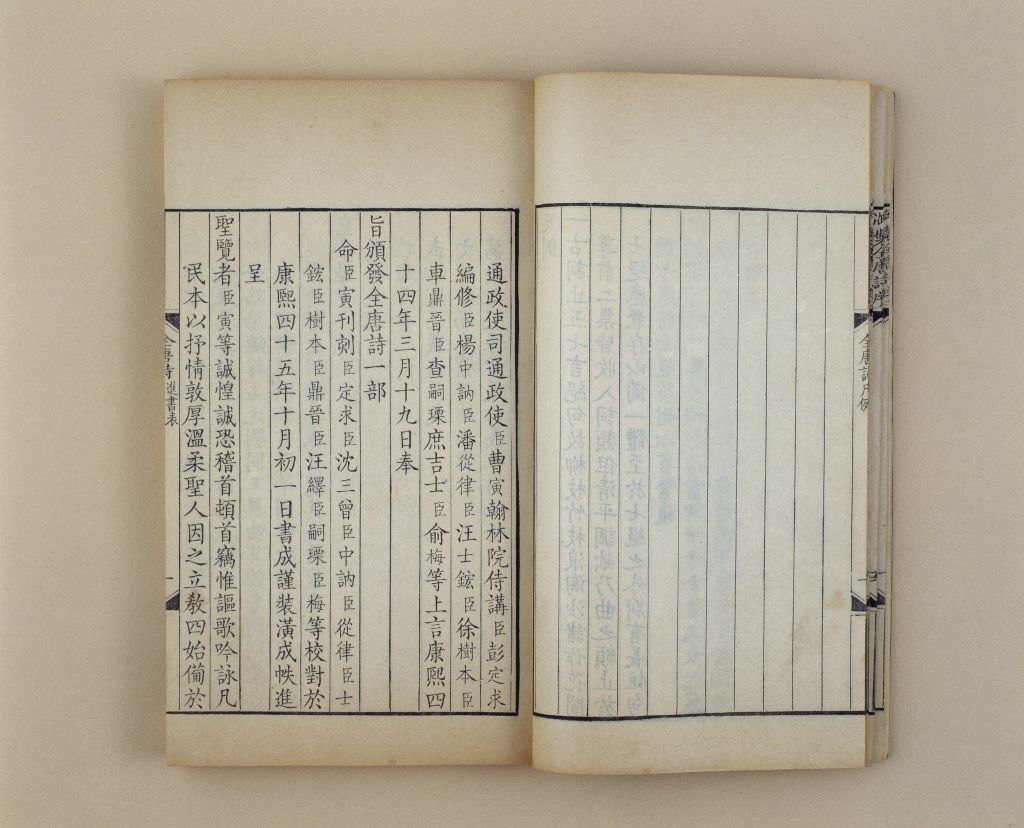 通政使司通政使臣曹寅翰林院侍講臣彭定求
編修臣楊中訥臣潘從律臣汪士鋐臣徐樹本臣
車鼎晉臣查嗣瑮庶吉士臣俞梅等上言康熙四
十四年三月十九日奉
旨頒發全唐詩一部
命臣寅刊刻臣定求臣沈三曾臣中訥臣從律臣士
鋐臣樹本臣鼎晉臣汪繹臣嗣瑮臣梅等校對於
康熙四十五年十月初一日書成謹裝潢成帙進
呈
聖覽者臣寅等誠惶誠恐稽首頓首竊惟謳歌吟詠凡
民本以抒情敦厚溫柔聖人因之立敎四始備於
全唐詩 進書表
一
全唐詩凡例
四